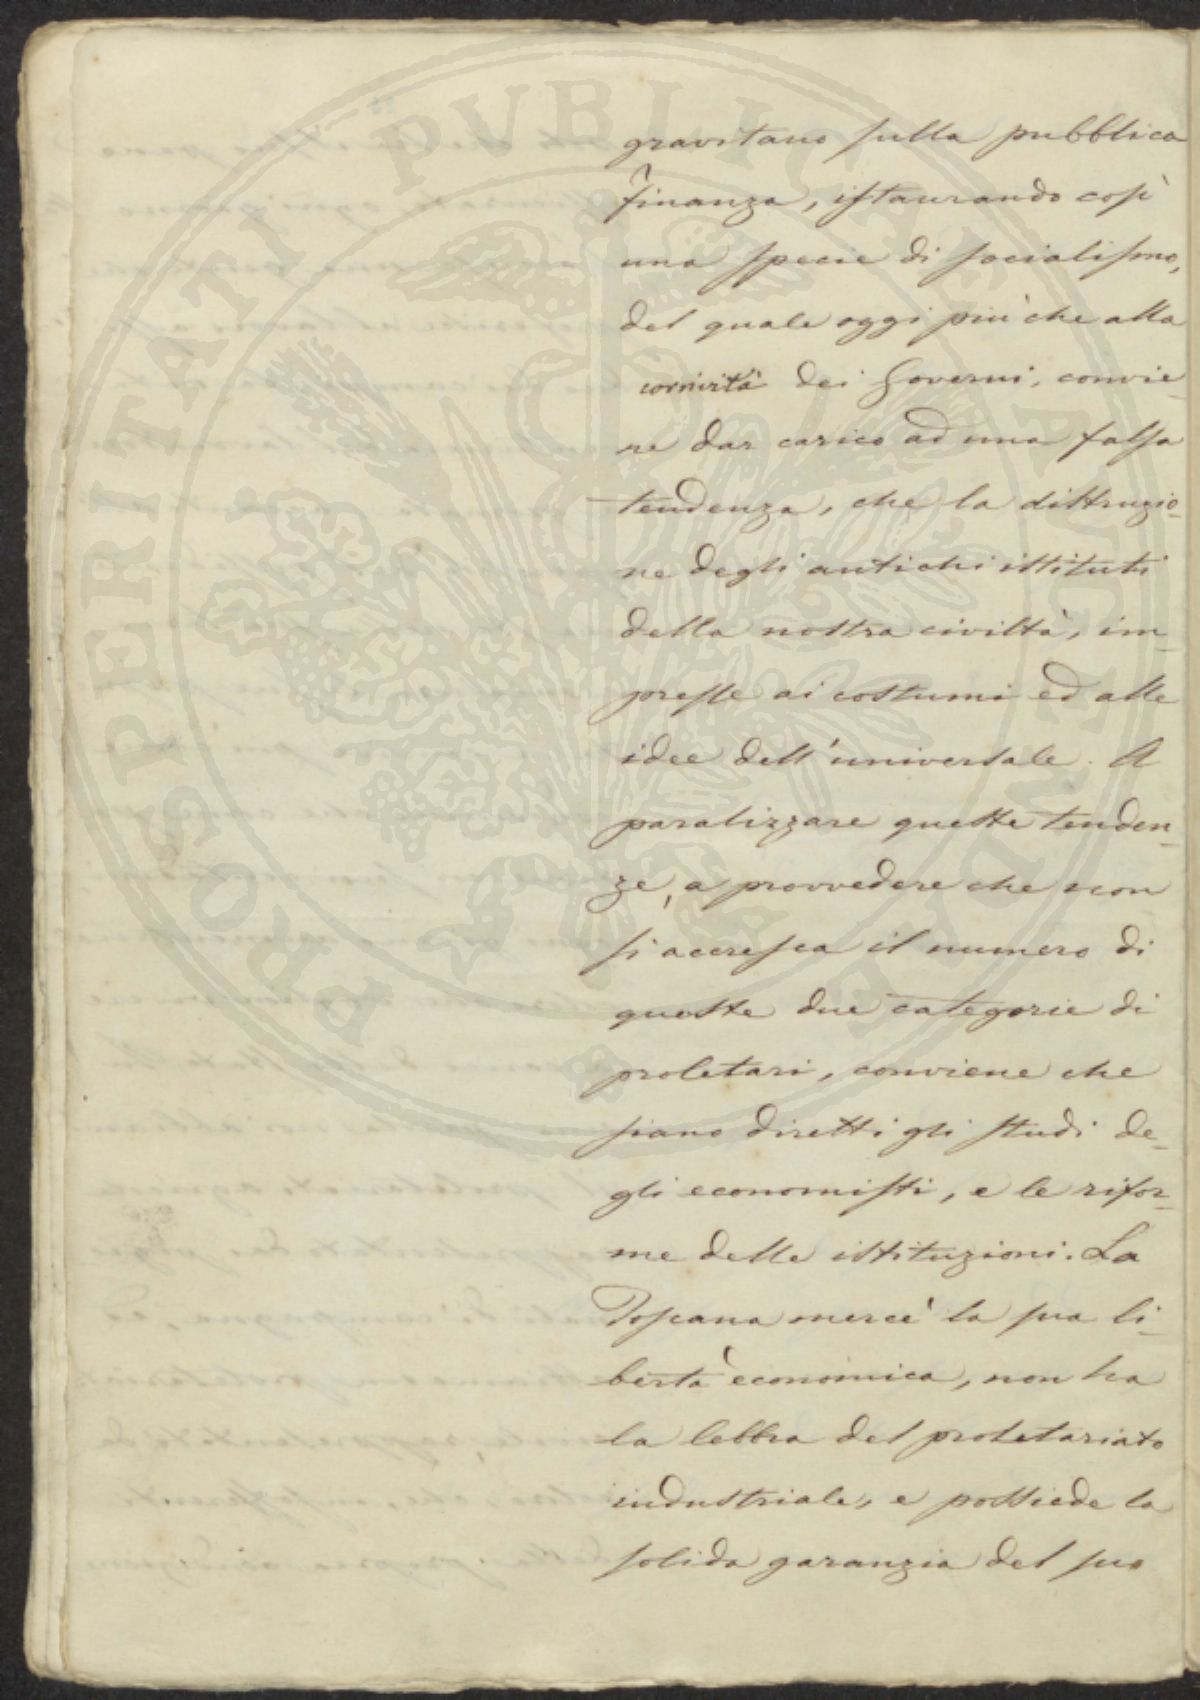 gravitano sulla pubblica
finanza, istaurando così
una specie di socialismo,
del quale oggi più che alla
corrività dei Governi, convie-
ne dar carico ad una falsa
tendenza, che la distruzio-
ne degli antichi istituti
della nostra civiltà, im-
presse ai costumi ed alle
idee dell'universale. A
paralizzare queste tenden-
ze, a provvedere che non
si accresca il numero di
queste due categorie di
proletari, conviene che
siano diretti gli studi de-
gli economisti, e le rifor-
me delle istituzioni. La
Toscana mercè la sua li-
bertà economica, non ha
la lebbra del proletariato
industriale, e possiede la
solida garanzia del suo
PROSPERITATI PUBLICAE AUGENDAE